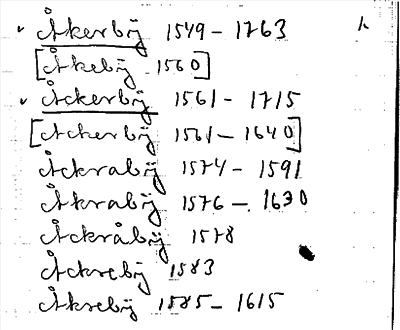 Åkerbÿ 1549 - 1763
[Åkebÿ 1560]
Åckerbÿ 1561 - 1715
[Ackerbÿ 1561 - 1640]
Åckrabÿ 1574 - 1591
Åkrabÿ 1576 - 1630
Åckråbÿ 1578
Åckrebÿ 1583
Åkrebÿ 1585 - 1615